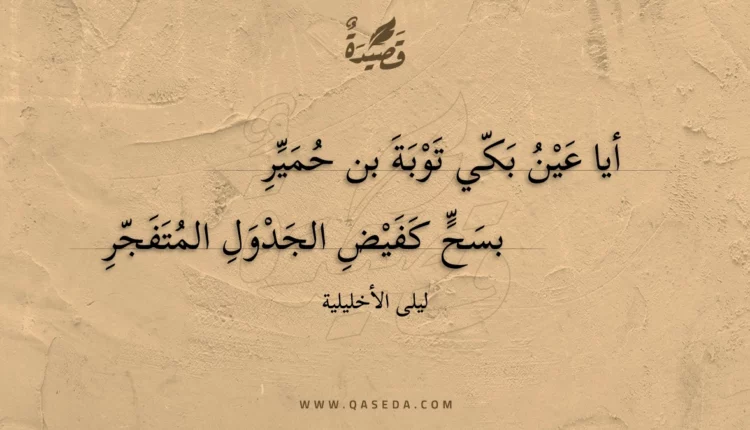 قَصِيدَةٌ
أيا عَيْنُ بَكّي تَوْبَةَ بن حُمَيِّرِ
بسَحٍّ كَفَيْضِ الجَدْوَلِ المُتَفَجّرِ
ليلى الأخليلية
WWW.QASEDA.COM